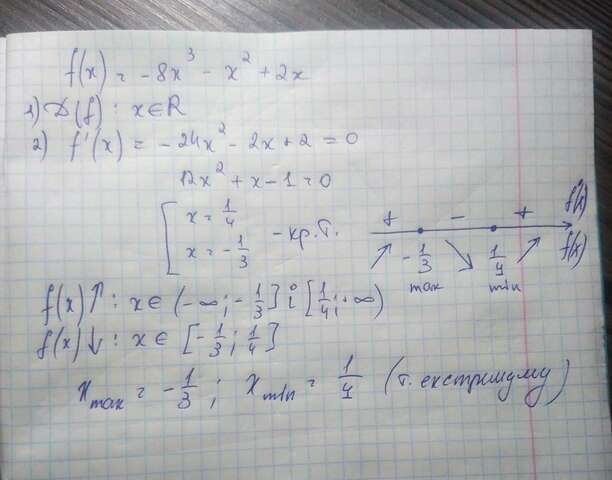 f(x) = -8x³ - x² + 2x
1) D(f) : x ∈ R
2) f'(x) = -24x² - 2x + 2 = 0
12x² + x - 1 = 0
[ x = 1/4
x = -1/3 - кр. т.
+ - + f'(x)
↗ -1/3 ↘ 1/4 ↗ f(x)
max min
f(x)↑ : x ∈ (-∞; -1/3] і [1/4; +∞)
f(x)↓ : x ∈ [-1/3; 1/4]
x max = -1/3 ; x min = 1/4 (т. екстримуму)